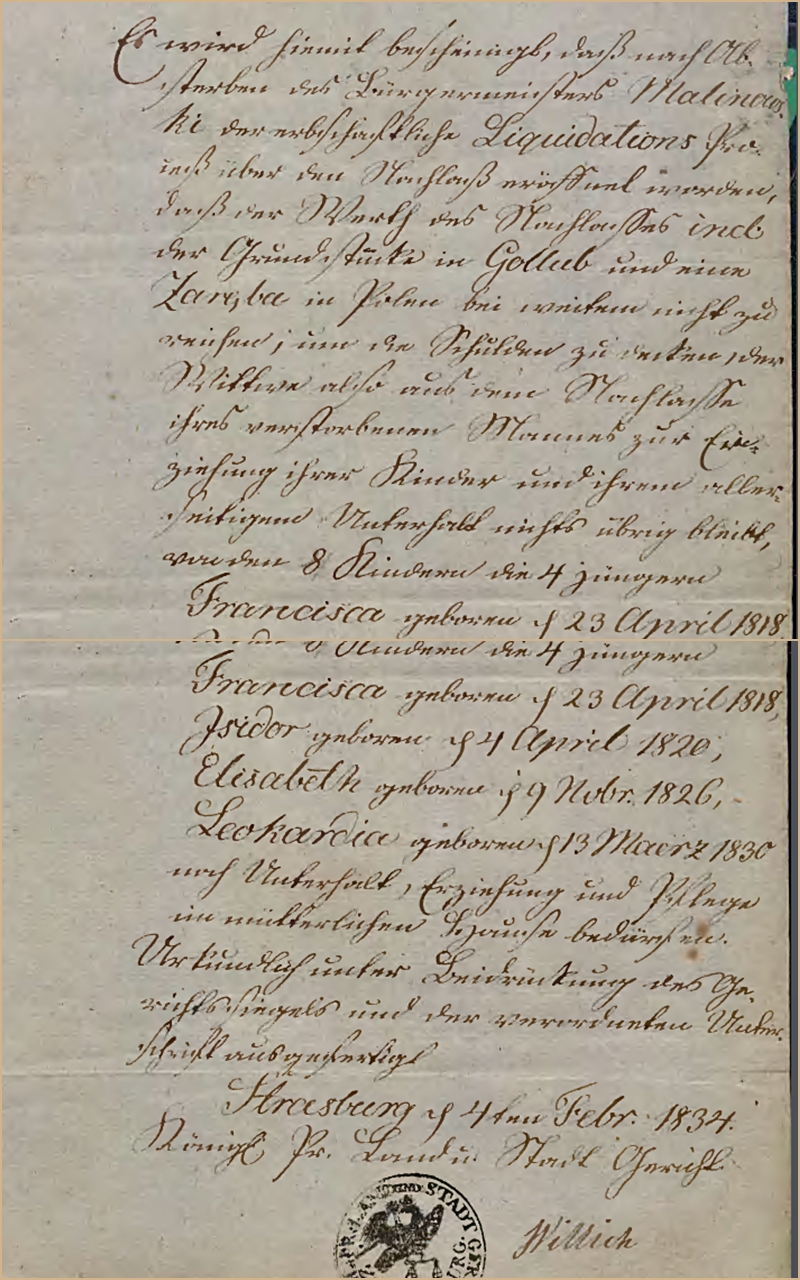 Es wird hiemit bescheinigt, daß nach Ab-
sterben des Bürgermeisters Malinows-
ki der erbschaftliche Liquidations Pro-
ceß über den Nachlaß eröffnet worden,
daß der Werth des Nachlasses incl.
der Grundstücke in Gollub und eine
Zaręba in Polen bei weitem nicht zu
reichen, um die Schulden zu decken, der
Wittwe also aus dem Nachlasse
ihres verstorbenen Mannes zur Er-
ziehung ihrer Kinder und ihrem aller-
seitigem Unterhalt nichts übrig bleibt,
von den 8 Kindern die 4 jüngern
Francisca geboren d 23 April 1818
8 Kindern die 4 jüngern
Francisca geboren d 23 April 1818,
Isidor geboren d 4 April 1820,
Elisabeth geboren d 9 Nobr. 1826,
Leokardia geboren d 13 Maerz 1830
noch Unterhalt, Erziehung und Pflege
im mütterlichen Hause bedürfen.
Urkundlich unter Beidrückung des Ge-
richtssiegels und der verordneten Unter-
schrift ausgefertigt
Strasburg d 4ten Febr. 1834.
Königl Pr. Land u Stadt Gericht
PR. LAND UND STADT GER
BURG.
Willich